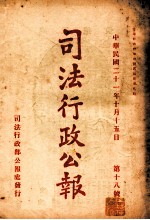 中華民國二十一年十月十五日
第十八號
司法行政公報
司法行政部公報處發行